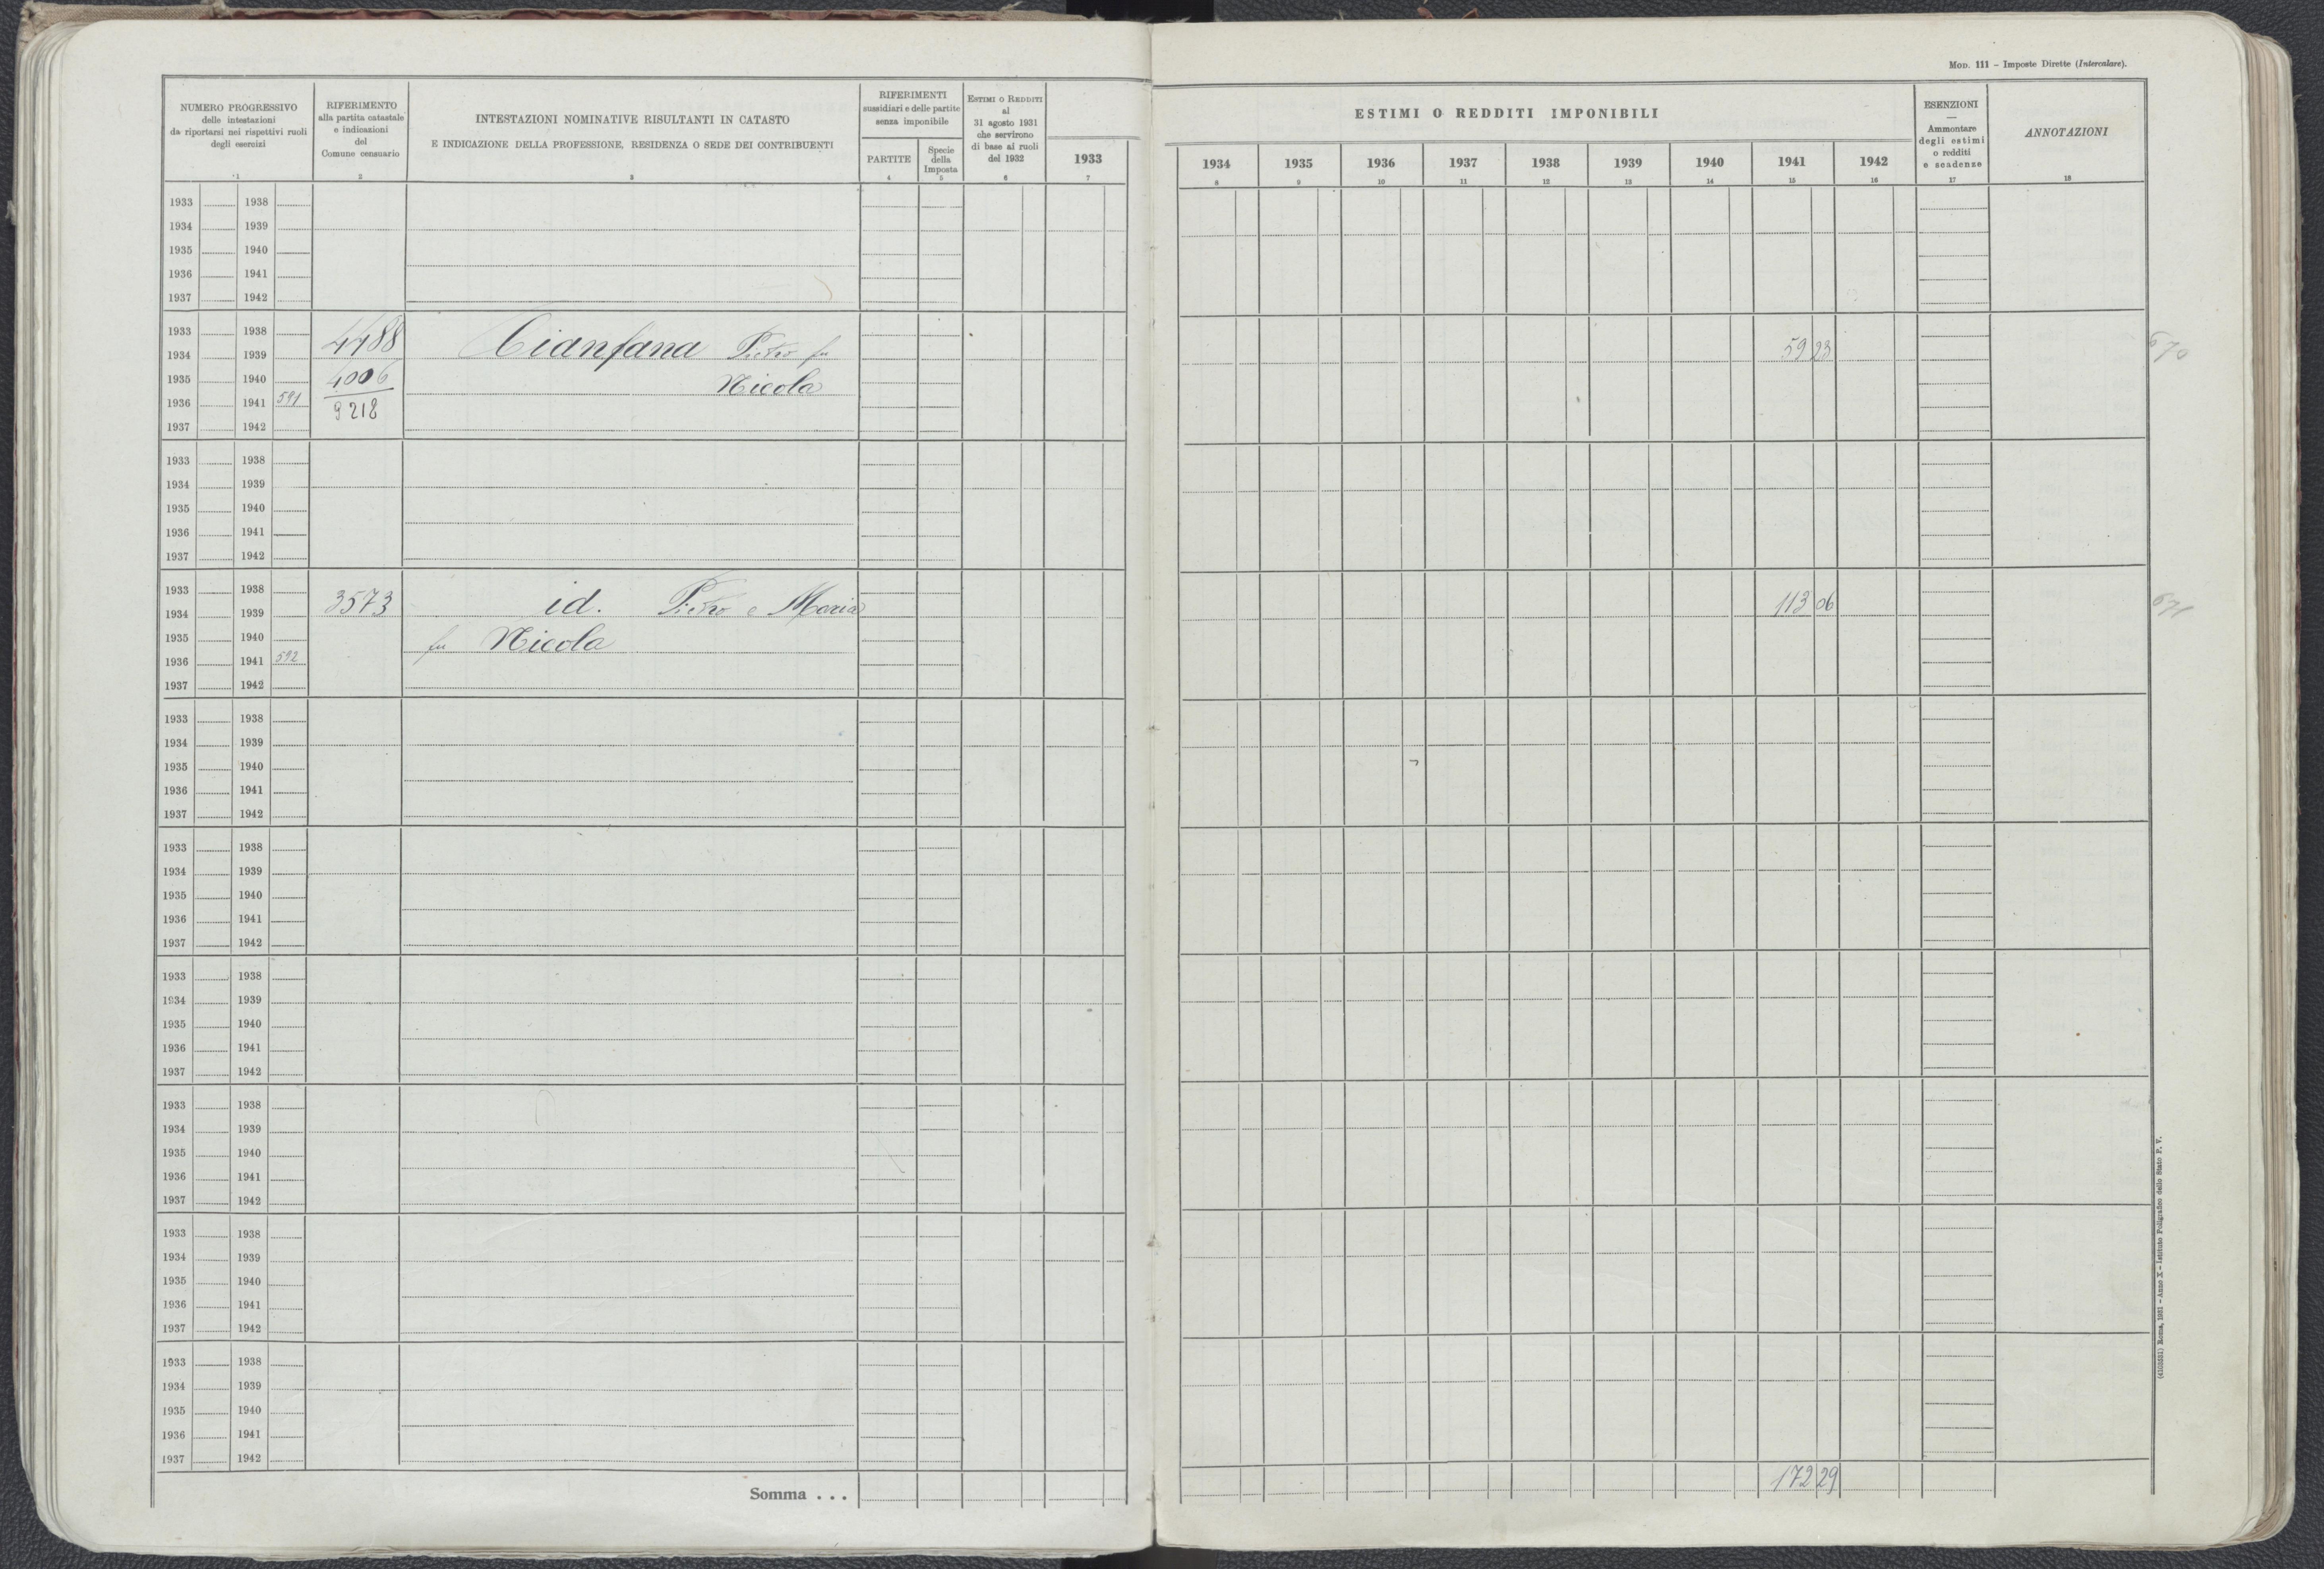 MOD. 111 – Imposte Dirette (Intercalare).
NUMERO PROGRESSIVO
delle intestazioni
da riportarsi nei rispettivi ruoli
degli esercizi
1
RIFERIMENTO
alla partita catastale
e indicazioni
del
Comune censuario
2
INTESTAZIONI NOMINATIVE RISULTANTI IN CATASTO
E INDICAZIONE DELLA PROFESSIONE, RESIDENZA O SEDE DEI CONTRIBUENTI
3
RIFERIMENTI
sussidiari e delle partite
senza imponibile
PARTITE
4
Specie
della
Imposta
5
ESTIMI O REDDITI
al
31 agosto 1931
che servirono
di base ai ruoli
del 1932
6
1933
7
ESTIMI O REDDITI IMPONIBILI
1934 1935 1936 1937 1938 1939 1940 1941 1942
8 9 10 11 12 13 14 15 16
ESENZIONI
—
Ammontare
degli estimi
o redditi
e scadenze
17
ANNOTAZIONI
18
1933 1938
1934 1939
1935 1940
1936 1941
1937 1942
1933 1938 4488
1934 1939 Cianfana Pietro fu 59 23 670
1935 1940 4006 Nicola
1936 1941 591 9218
1937 1942
1933 1938
1934 1939
1935 1940
1936 1941
1937 1942
1933 1938
1934 1939 3573 id. Pietro e Maria 113 06 671
1935 1940 fu Nicola
1936 1941 592
1937 1942
1933 1938
1934 1939
1935 1940
1936 1941
1937 1942
1933 1938
1934 1939
1935 1940
1936 1941
1937 1942
1933 1938
1934 1939
1935 1940
1936 1941
1937 1942
1933 1938
1934 1939
1935 1940
1936 1941
1937 1942
1933 1938
1934 1939
1935 1940
1936 1941
1937 1942
1933 1938
1934 1939
1935 1940
1936 1941
1937 1942
Somma . . . 172 29
(4103551) Roma, 1931 – Anno X – Istituto Poligrafico dello Stato P. V.